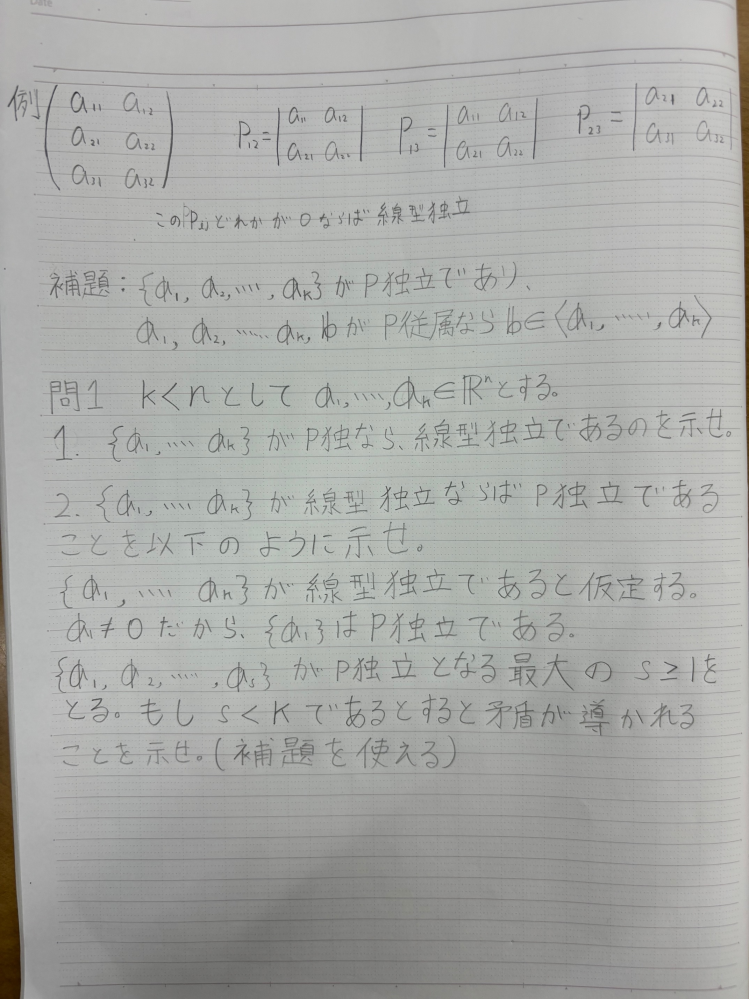 Date
例 ( a₁₁ a₁₂ / a₂₁ a₂₂ / a₃₁ a₃₂ ) P₁₂ = | a₁₁ a₁₂ / a₂₁ a₂₂ | P₁₃ = | a₁₁ a₁₂ / a₂₁ a₂₂ | P₂₃ = | a₂₁ a₂₂ / a₃₁ a₃₂ |
どれかが0ならば線型独立
補題:{𝕒₁, 𝕒₂, ……, 𝕒ₖ}がP独立であり、
𝕒₁, 𝕒₂, …… 𝕒ₖ, 𝕓がP従属なら𝕓∈〈𝕒₁, ……, 𝕒ₖ〉
問1 k<nとして 𝕒₁, ……, 𝕒ₖ∈ℝⁿとする。
1. {𝕒₁, …… 𝕒ₖ}がP独なら、線型独立であるのを示せ。
2. {𝕒₁, …… 𝕒ₖ}が線型独立ならばP独立である
ことを以下のように示せ。
{𝕒₁, …… 𝕒ₖ}が線型独立であると仮定する。
𝕒₁≠0だから、{𝕒₁}はP独立である.
{𝕒₁, 𝕒₂, ……, 𝕒ₛ}がP独立となる最大のs≥1を
とる。もしs<kであるとすると矛盾が導かれる
ことを示せ。(補題を使える)